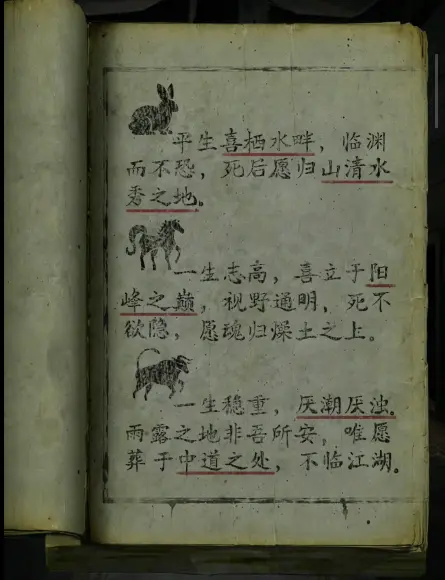 平生喜栖水畔，临渊
而不恐，死后愿归山清水
秀之地。
一生志高，喜立于阳
峰之巅，视野通明，死不
欲隐，愿魂归燥土之上。
一生稳重，厌潮厌浊，
雨露之地非吾所安，唯愿
葬于中道之处，不临江湖。